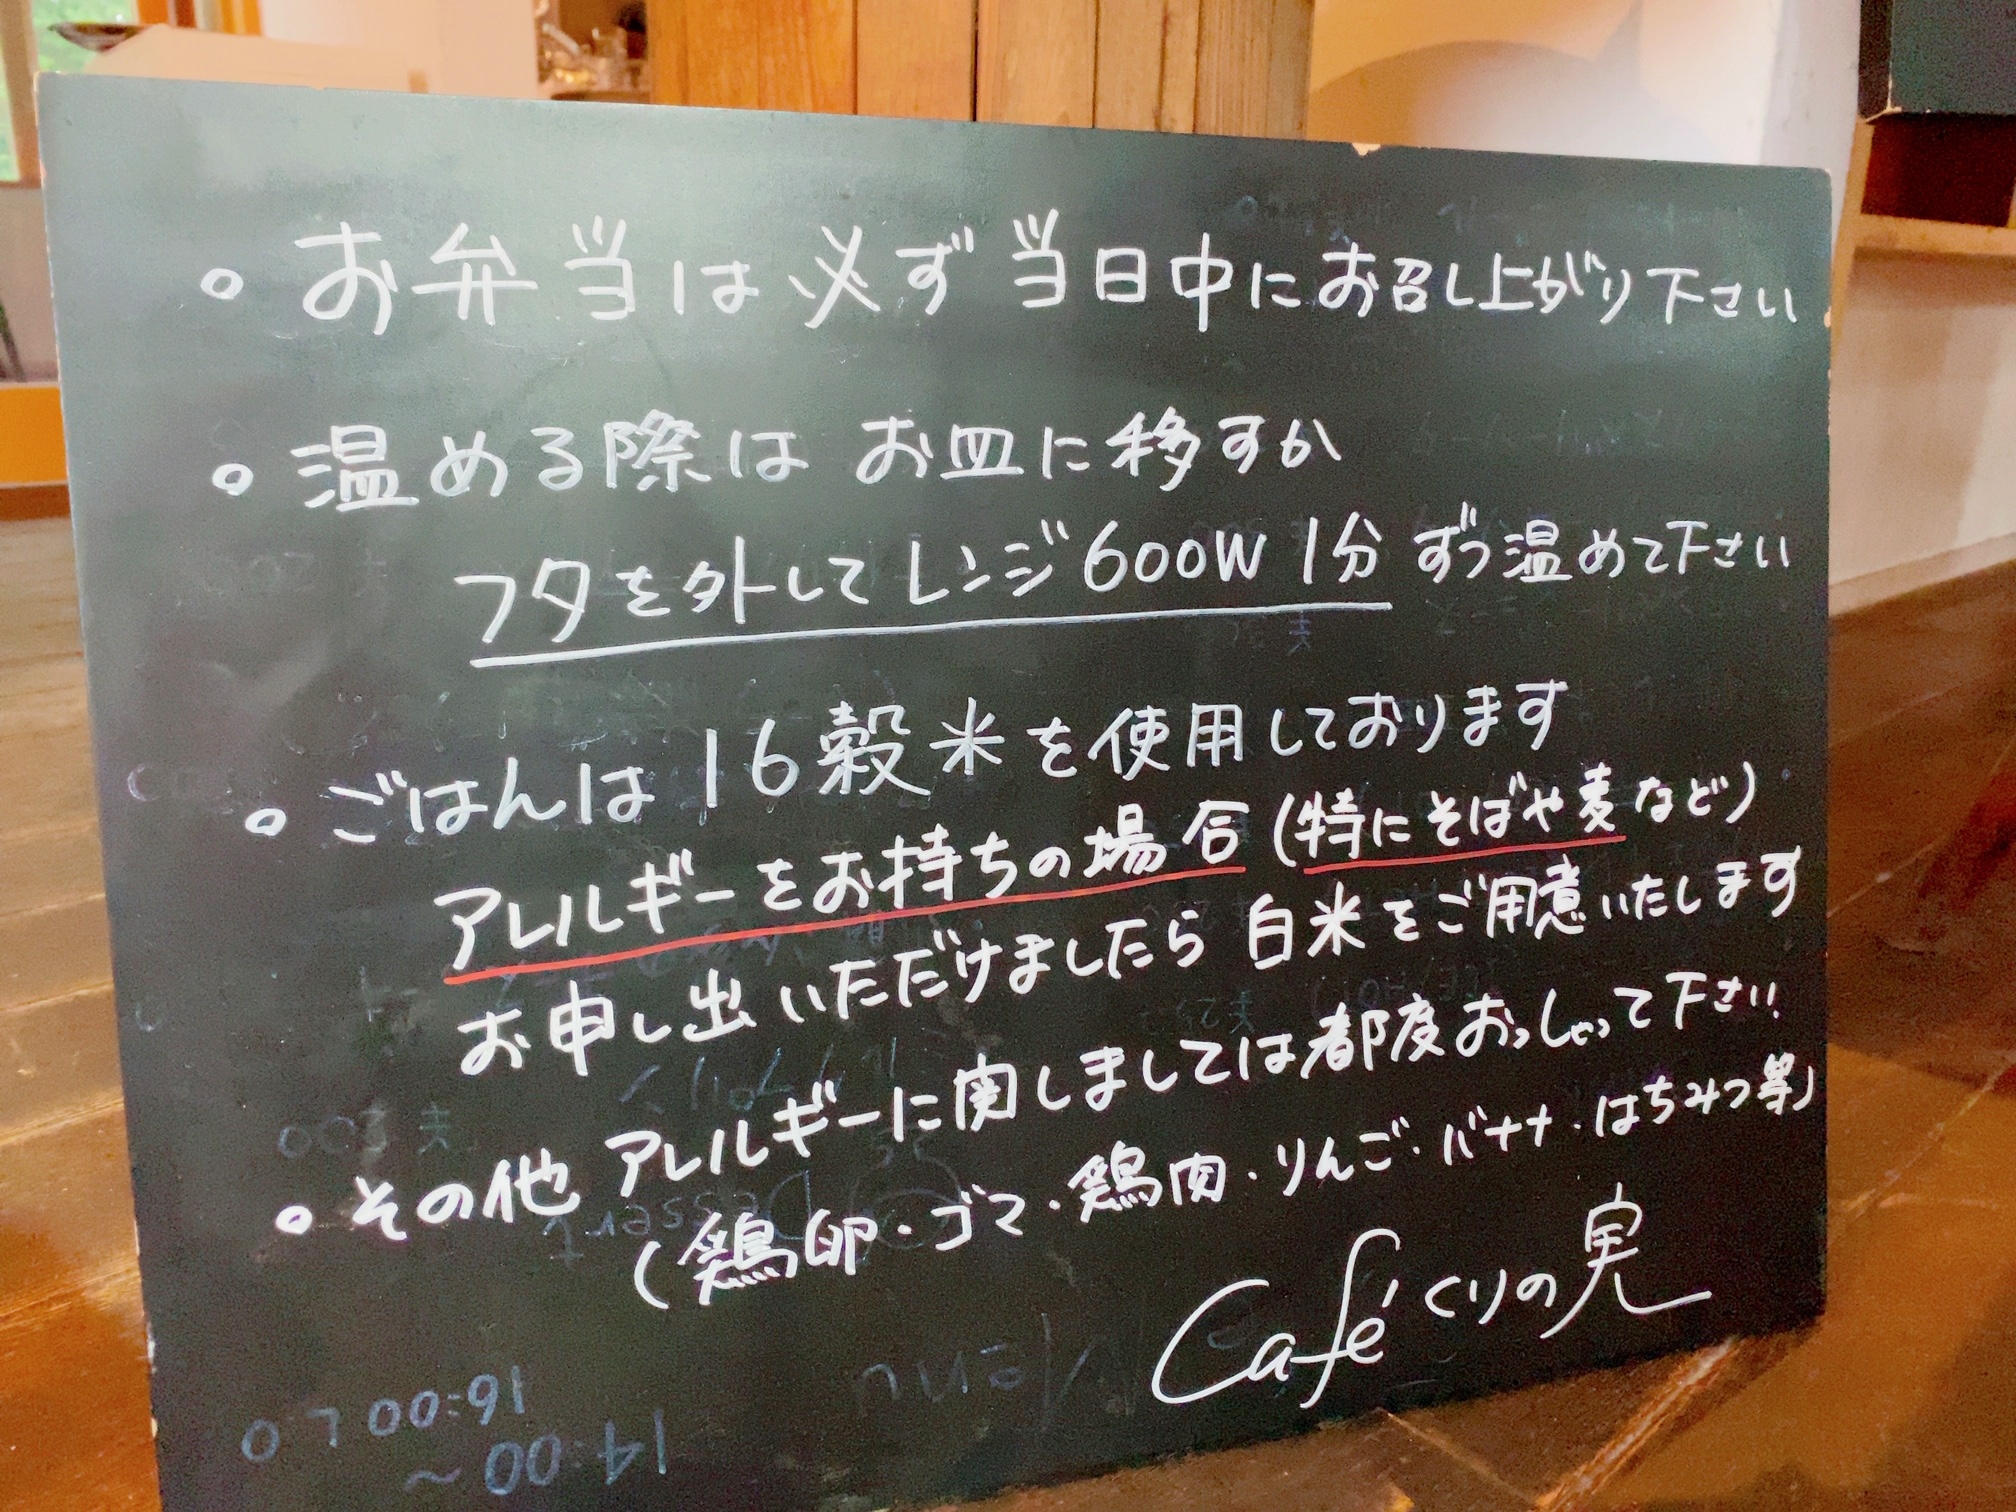 。お弁当は必ず当日中にお召し上がり下さい
。温める際は お皿に移すか
フタを外してレンジ600W 1分 ずつ温めて下さい
。ごはんは16穀米を使用しております
アレルギーをお持ちの場合(特にそばや麦など)
お申し出いただけましたら白米をご用意いたします
。その他 アレルギーに関しましては都度おっしゃって下さい
(鶏卵・ゴマ・鶏肉・りんご・バナナ・はちみつ等)
Café くりの実
14:00~
16:00 L.O